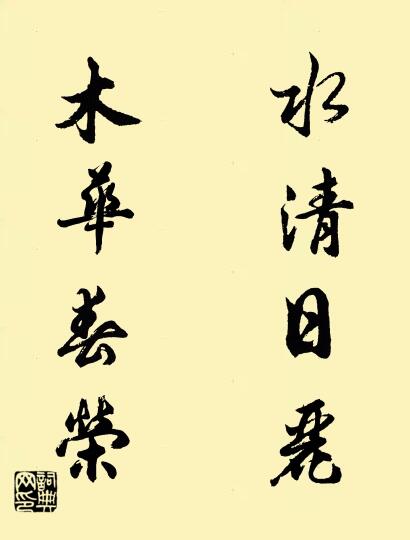 水清日麗
木華春榮
詞典網印